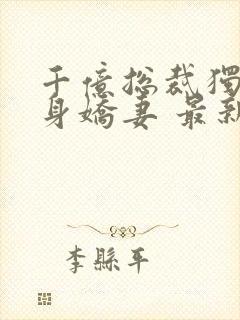 千億總裁獨
身嬌妻 最新
李縣平